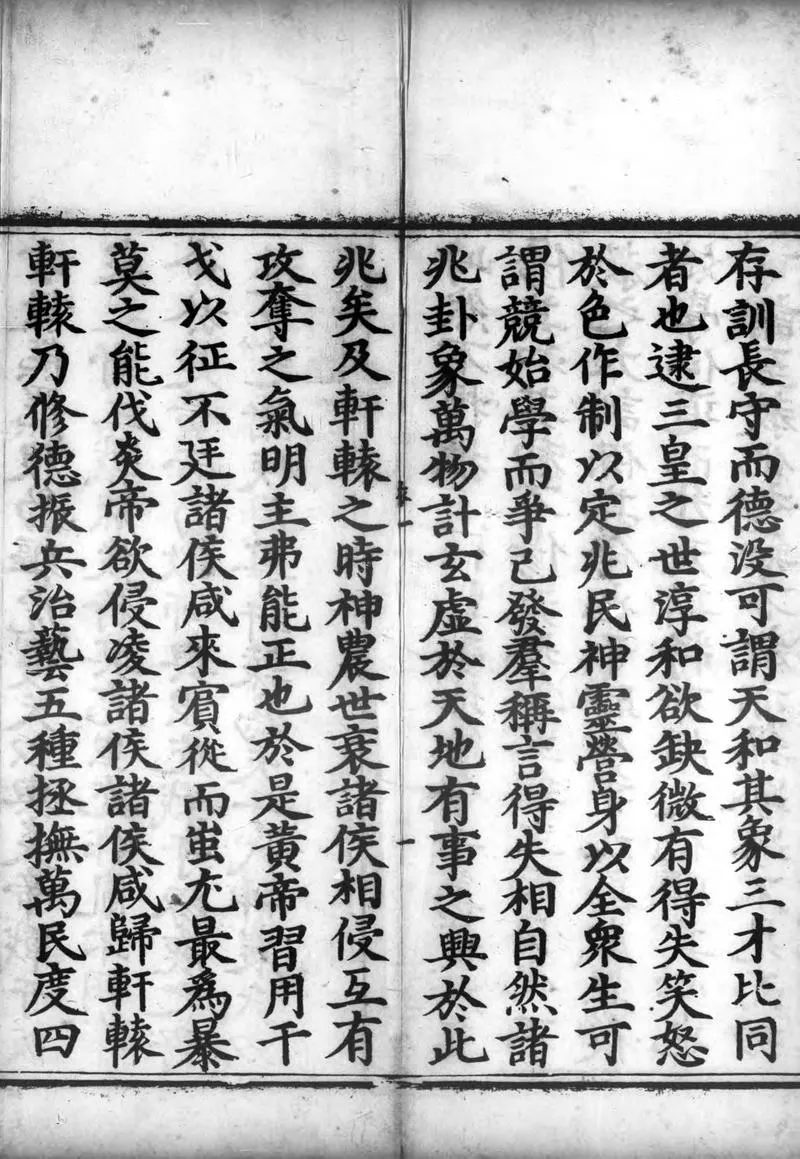 存訓長守而德没可謂天和其象三才比同
者也逮三皇之世淳和欲缺微有得失笑怒
於色作制以定兆民神靈營身以全衆生可
謂競始學而爭己發羣稱言得失相自然諸
兆卦象萬物計玄虚於天地有事之興於此
兆矣及軒轅之時神農世衰諸侯相侵互有
攻奪之氣明主弗能正也於是黄帝習用干
戈以征不廷諸侯咸來賓從而蚩尤最爲暴
莫之能伐炎帝欲侵凌諸侯諸侯咸歸軒轅
軒轅乃修德振兵治藝五種拯撫萬民度四